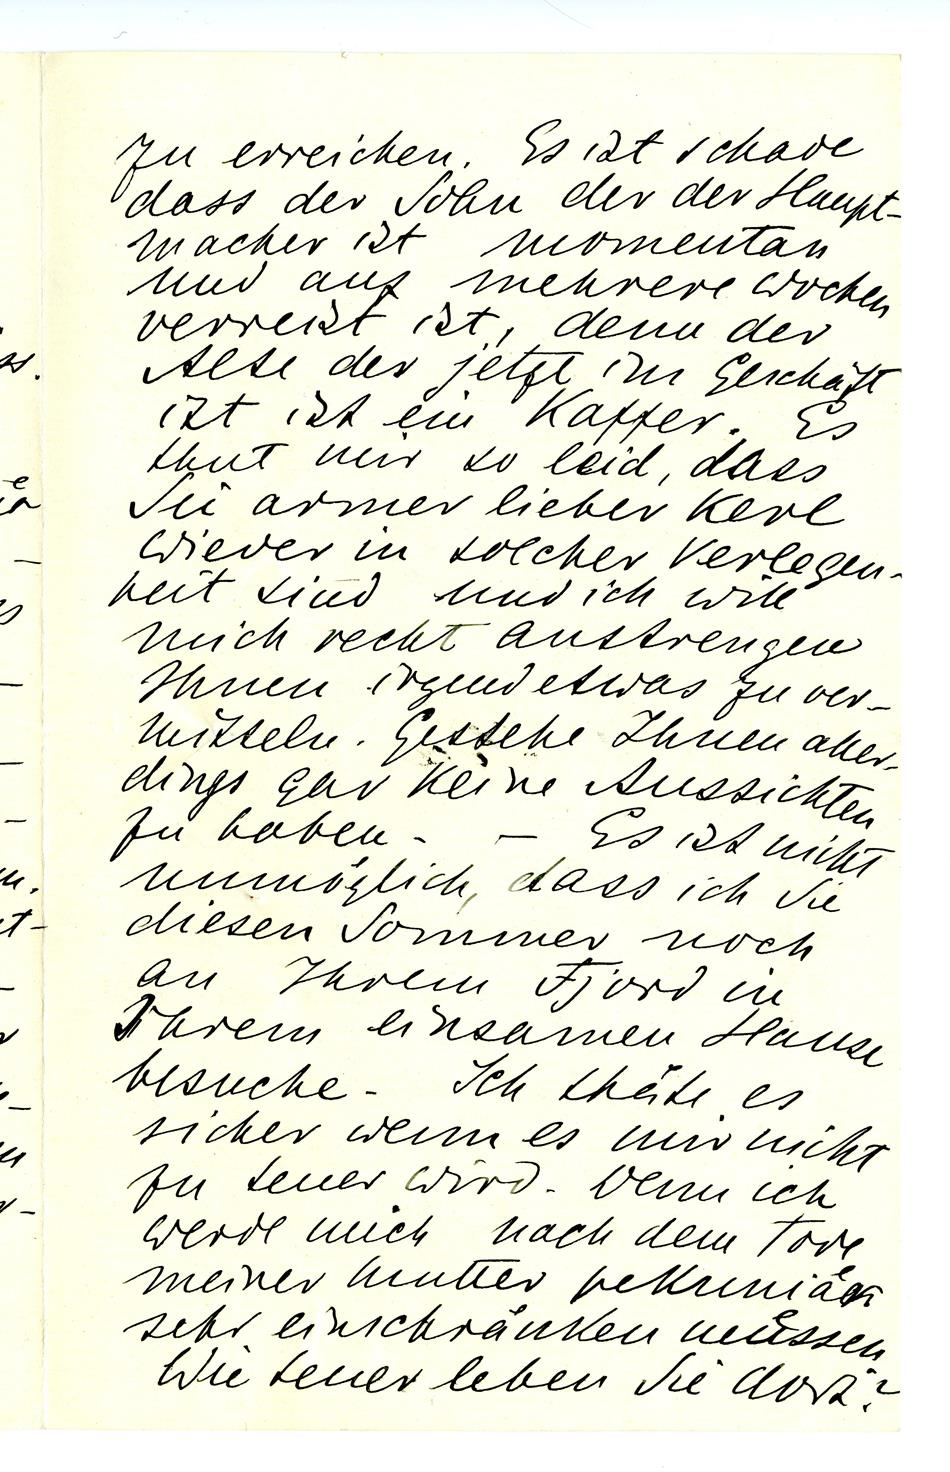 zu erreichen. Es ist schade
dass der Sohn der der Haupt-
macher ist momentan
und auf mehrere Wochen
verreist ist, denn der
Alte der jetzt im Geschäft
ist ist ein Kaffer. Es
thut mir so leid, dass
Sie armer lieber Kerl
wieder in solcher Verlegen-
heit sind und ich will
mich recht anstrengen
Ihnen irgend etwas zu ver-
mitteln. Gestehe Ihnen aller-
dings gar keine Aussichten
zu haben. — Es ist nicht
unmöglich, dass ich Sie
diesen Sommer noch
an Ihrem Fjord in
Ihrem einsamen Hause
besuche. Ich thäte es
sicher wenn es mir nicht
zu teuer wird. Denn ich
werde mich nach dem Tode
meiner Mutter pekuniär
sehr einschränken müssen
Wie teuer leben Sie dort?